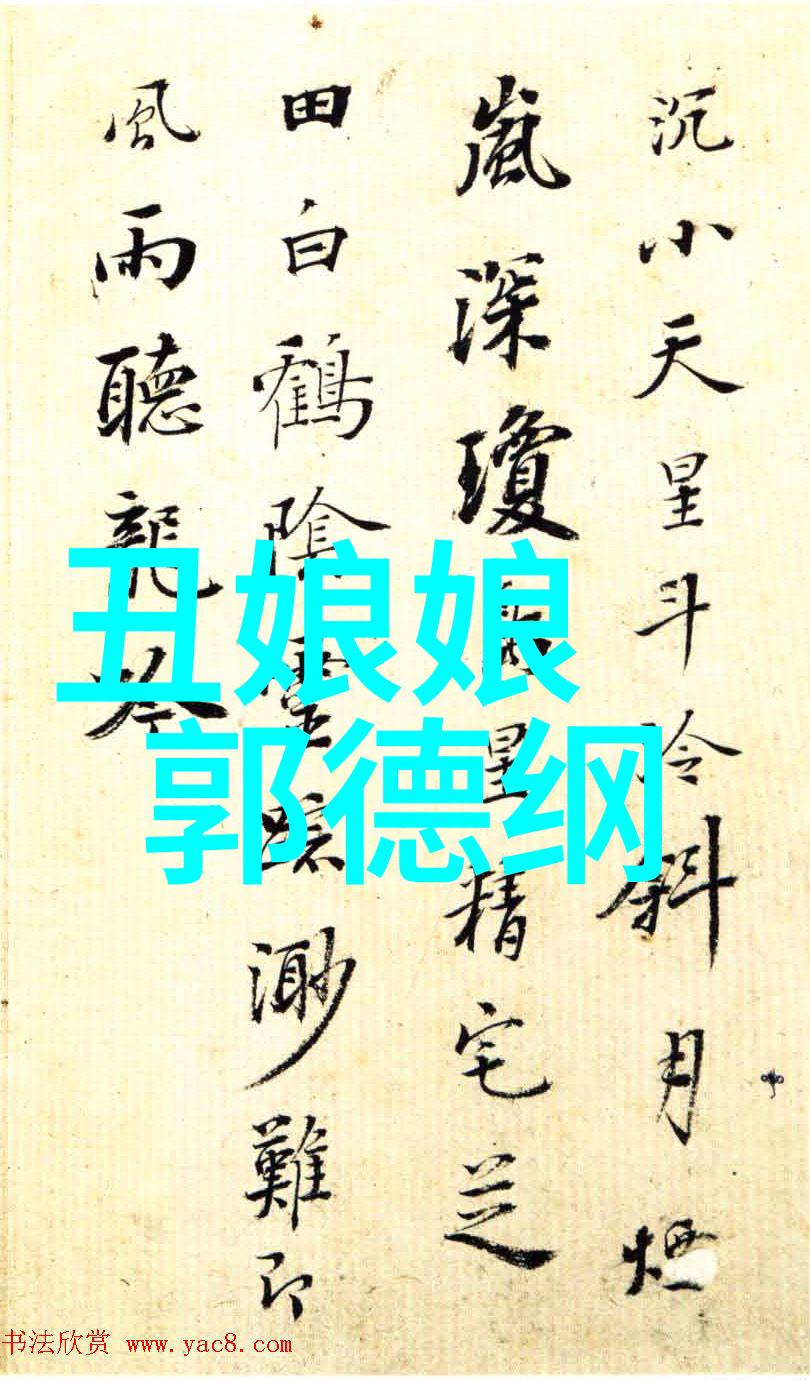 沉小天星斗冷斜月煙
嵐深瓊星精宅芝
田白鶴陰渺難即
風雨聽龍吟
丑娘娘
郭德纲
书法欣赏 www.yac8.com